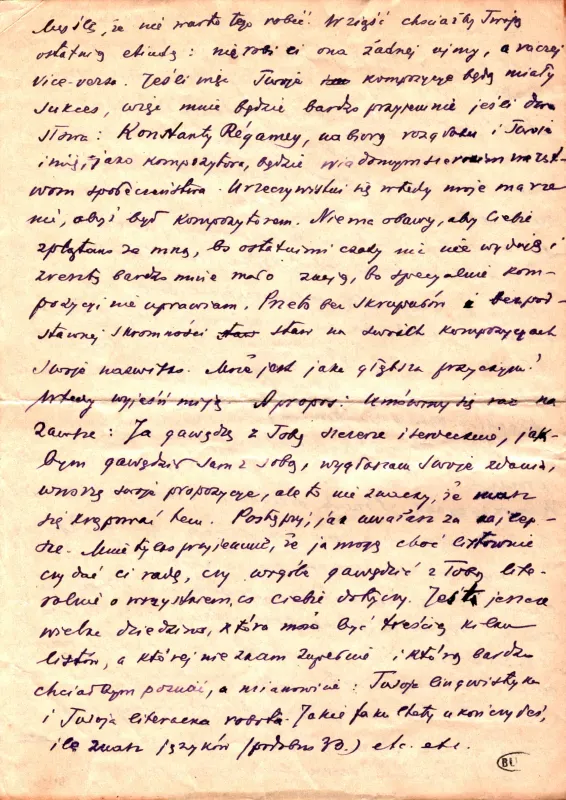 Myślę, że nie warto tego robić! Wziąść chociażby Twoją
ostatnią etiudę: nie robi ci ona żadnej ujmy, a raczej
vice-versa. Jeśli więc Twoje kompozycje będą miały
sukces, więc mnie będzie bardzo przyjemnie jeśli dwa
słowa: Konstanty Régamey, nabiorą rozgłosu i Twoje
imię, jako kompozytora, będzie wiadomym szerokim warst-
wom społeczeństwa. Urzeczywistni się wtedy moje marze
nie, abyś był kompozytorem. Niema obawy, aby Ciebie
zplątano ze mną, bo ostatnimi czasy nic nie wydaję i
zresztą bardzo mnie mało znają, bo specjalnie kom-
pozycji nie uprawiam. Przeto bez skrupułów i bezpod-
stawnej skromności staw na swoich kompozycjach
swoje nazwisko. Może jest jaka głębsza przyczyna?
Wtedy wyjaśń mi ją. A propos: Umówmy się raz na
zawsze: Ja gawędzę z Tobą szczerze i serdecznie, jak-
bym gawędził sam z sobą, wygłaszam swoje zdania,
wnoszę swoje propozycje, ale to nie znaczy, że masz
się krępować tem. Postępuj, jak uważasz za najlep-
sze. Mnie tylko przyjemnie, że ja mogę choć listownie
czy dać ci radę, czy wogóle gawędzić z Tobą lite-
ralnie o wszystkiem, co ciebie dotyczy. Jest jeszcze
wielka dziedzina, która może być treścią kilku
listów, a której nie znam zupełnie i którą bardzo
chciałbym poznać, a mianowicie: Twoja lingwistyka
i Twoja literacka robota. Jakie fakultety ukończyłeś,
ile znasz języków (podobno 30.) etc. etc.
BU